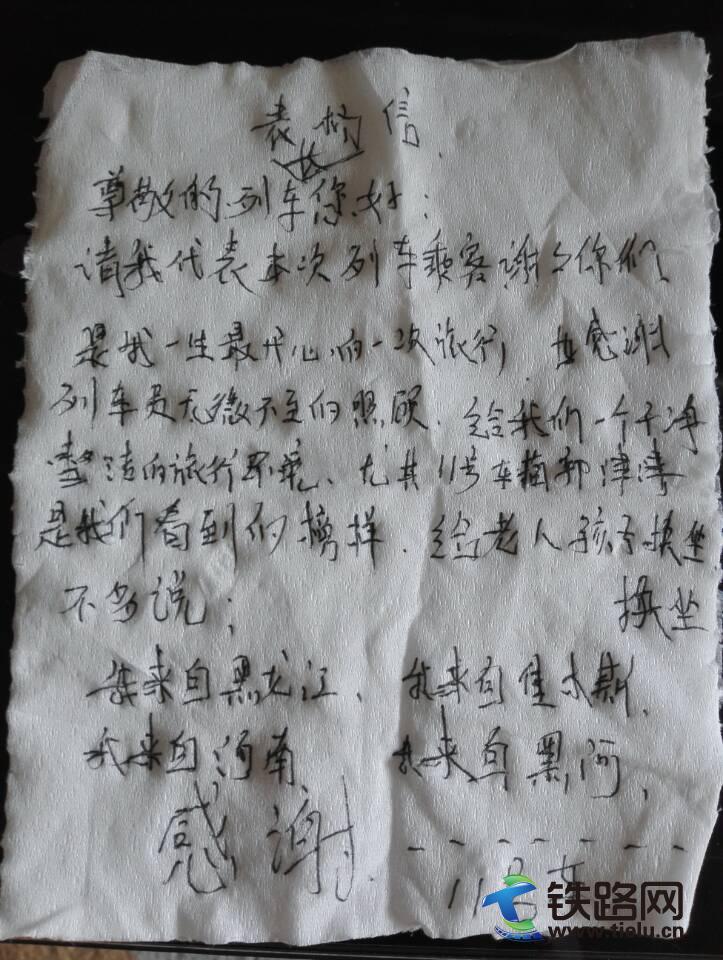 表扬信
尊敬的列车您好:
请我代表本次列车乘客谢谢你们
是我一生最开心的一次旅行,也感谢
列车员无微不至的照顾.给我们一个干净
整洁的旅行环境、尤其11号车厢郭津津
是我们看到的榜样.给老人孩子换坐
换坐
不多说;
我来自黑龙江、我来自佳木斯、
我来自河南、我来自黑河、
感谢.
11号车
铁路网
www.tielu.cn